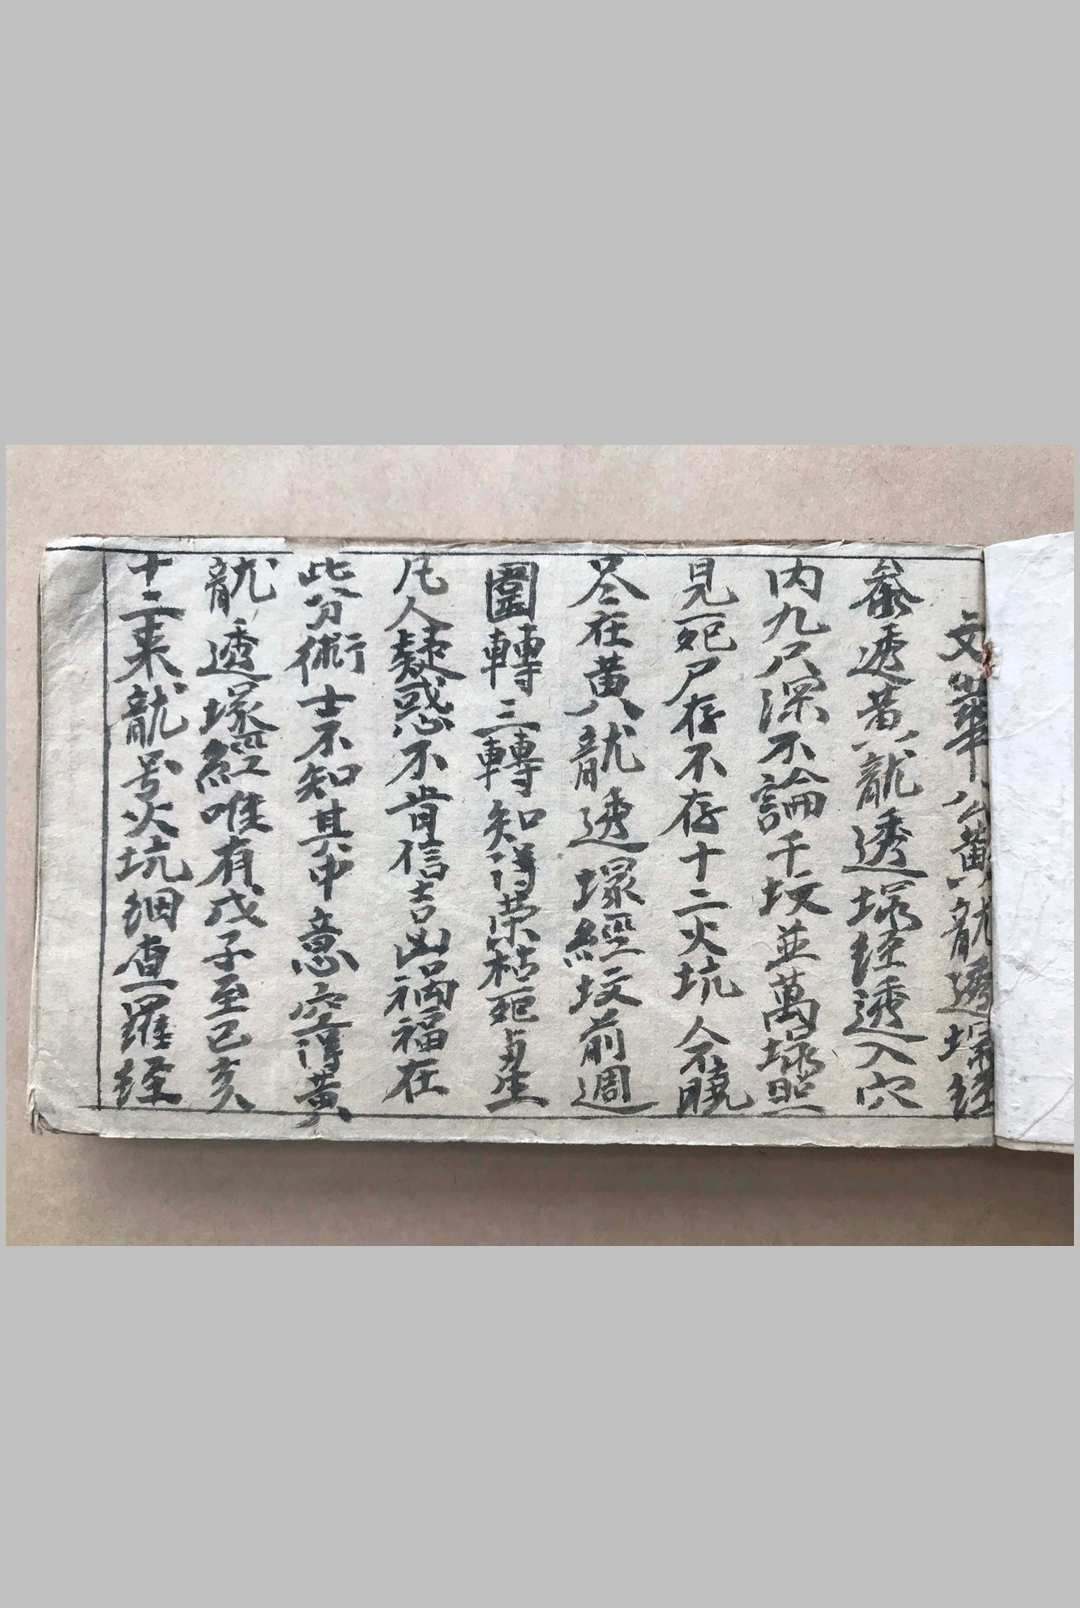 文華公黄龍透塚経
叅透黄龍透塚経透入穴
内九尺深不論千坟並萬塚照
見死尸存不存十二火坑人不曉
尽在黄龍透塚經坟前週
圍轉三轉知得荣枯死與生
凡人疑惑不肯信吉凶禍福在
此方術士不知其中意空得黄
龍透塚經唯有戊子至己亥
十二来龍号火坑細查羅経